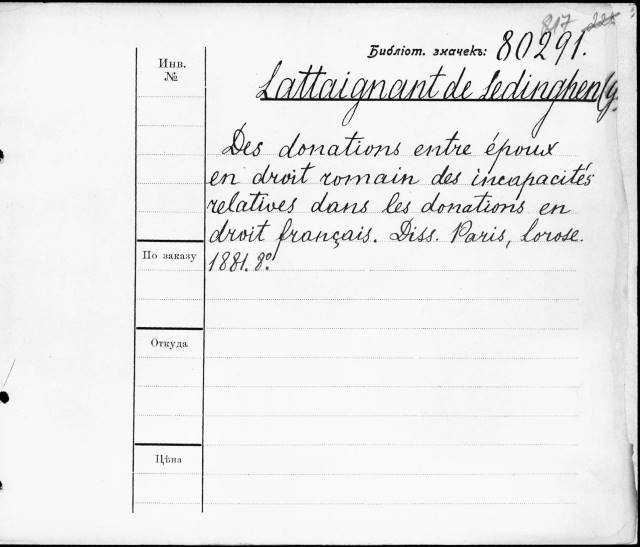 817
Библіот. значекъ: 80291.
Инв. №
Lattaignant de Ledinghen (G.
Des donations entre époux
en droit romain des incapacités
relatives dans les donations en
droit français. Diss. Paris, Lorose.
По заказу
1881. 8º.
Откуда
Цѣна